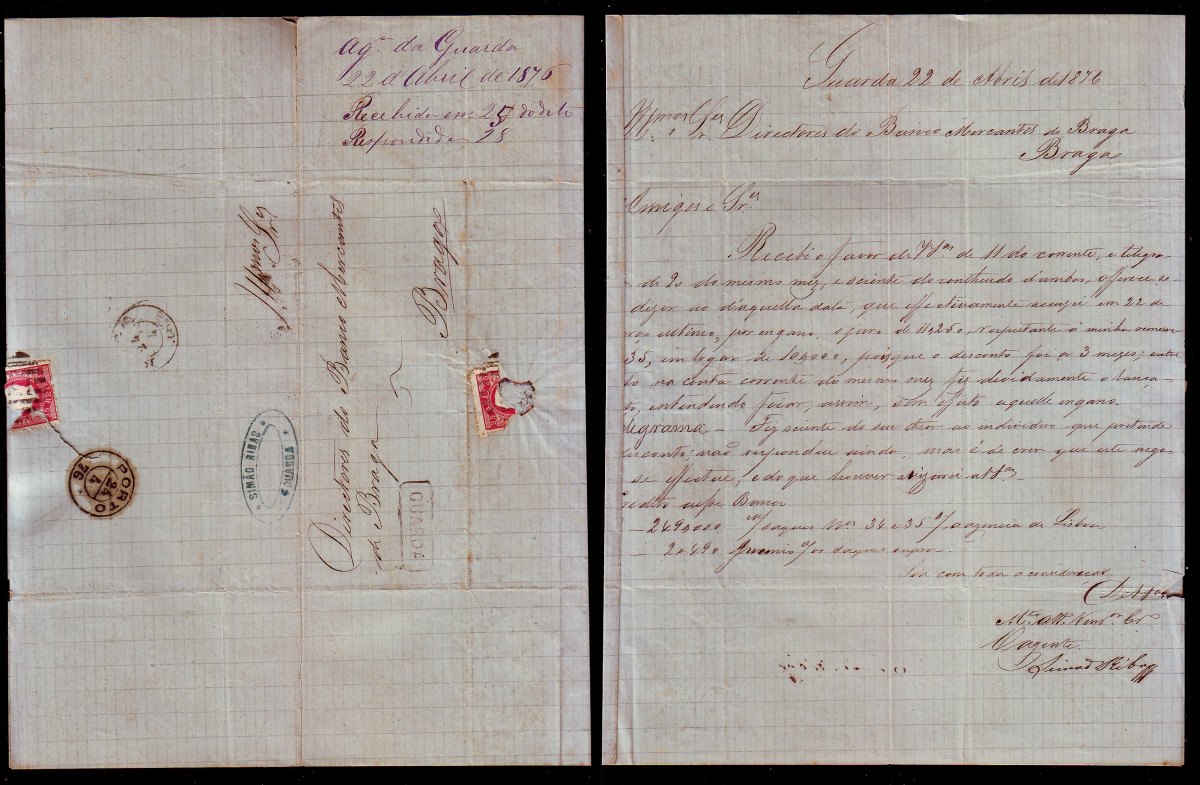 Agª da Guarda
22 d'Abril de 1876
Recebida em 25 do dito
Respondida " 25
Illmos Srs
Directores do Banco Mercantil
de Braga
Braga
GUARDA
SIMÃO RIBAS
GUARDA
PORTO
24
4
76
Guarda 22 de Abril de 1876
Illmos Srs Directores do Banco Mercantil de Braga
Braga
Amigos e Srs
Recebi o favor de VSas de 11 do corrente, e telegra-
de 20 do mesmo mez, e sciente do contheudo d'ambos, offerece-se
dizer ao d'aquella data, que effectivamente accuzei em 22 de
ultimo, por engano, o juro de 11$250, respeitante á minha remessa
35, em logar de 10$000, porque o desconto foi a 3 mezes; entre
na conta corrente do mesmo mez fiz devidamente o lança-
entendendo ficar, assim, sem effeito aquelle engano.
legrama — Fiz sciente do seu theor ao individuo que pretende
desconto; não respondeu ainda, mas é de crer que este nego-
se effectue, e do que houver avizarei a VSas. —
credito desse Banco
— 249$000 saques Nos 34 e 35 s/ a agencia de Lisboa
— 2$490 premio s/ os saques supra.
Sou com toda a consideração
De VSas
Mto Attº Venor Crº
O agente
Simão Ribas